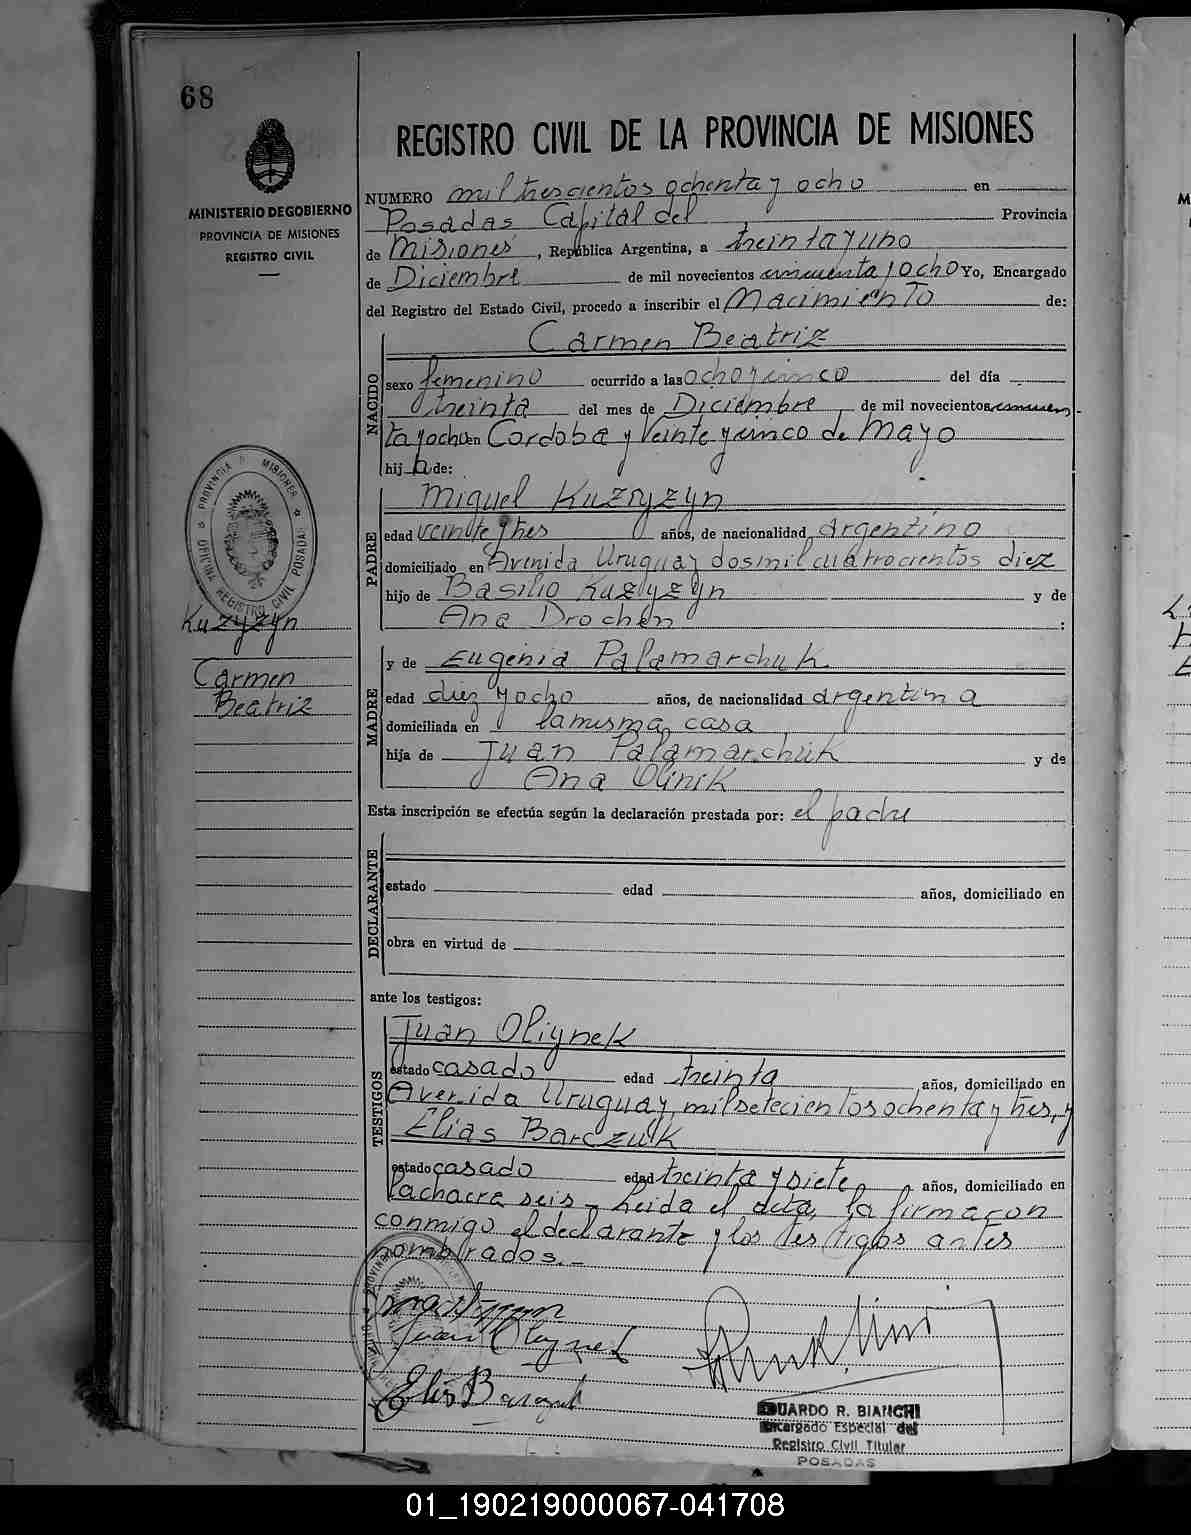 68
REGISTRO CIVIL DE LA PROVINCIA DE MISIONES
MINISTERIO DE GOBIERNO
PROVINCIA DE MISIONES
REGISTRO CIVIL
NUMERO mil trescientos ochenta y ocho en
Posadas Capital del Provincia
de Misiones, República Argentina, a treinta y uno
de Diciembre de mil novecientos cincuenta y ocho Yo, Encargado
del Registro del Estado Civil, procedo a inscribir el Nacimiento de:
NACIDO
Carmen Beatriz
sexo femenino ocurrido a las ocho y cinco del día
treinta del mes de Diciembre de mil novecientos cincuen-
ta y ocho en Cordoba y Veinte y cinco de Mayo
hij a de:
PADRE
Miguel Kuzyzyn
edad veinte y tres años, de nacionalidad argentino
domiciliado en Avenida Uruguay dos mil cuatrocientos diez
hijo de Basilio Kuzyzyn y de
Ana Drochen :
MADRE
y de Eugenia Palamarchuk
edad diez y ocho años, de nacionalidad argentina
domiciliada en la misma casa
hija de Juan Palamarchuk y de
Ana Olinik
Esta inscripción se efectúa según la declaración prestada por: el padre
DECLARANTE
estado edad años, domiciliado en
obra en virtud de
ante los testigos:
TESTIGOS
Juan Oliynek
estado casado edad treinta años, domiciliado en
Avenida Uruguay, mil setecientos ochenta y tres, y
Elias Barczuk
estado casado edad treinta y siete años, domiciliado en
la chacra seis - Leida el acta, la firmaron
conmigo el declarante y los testigos antes
nombrados.-
PROVINCIA DE MISIONES
OFICINA REGISTRO CIVIL POSADAS
Kuzyzyn
Carmen
Beatriz
Juan Oliynek
Elias Barczuk
EDUARDO R. BIANCHI
Encargado Especial del
Registro Civil Titular
POSADAS
01_190219000067-041708